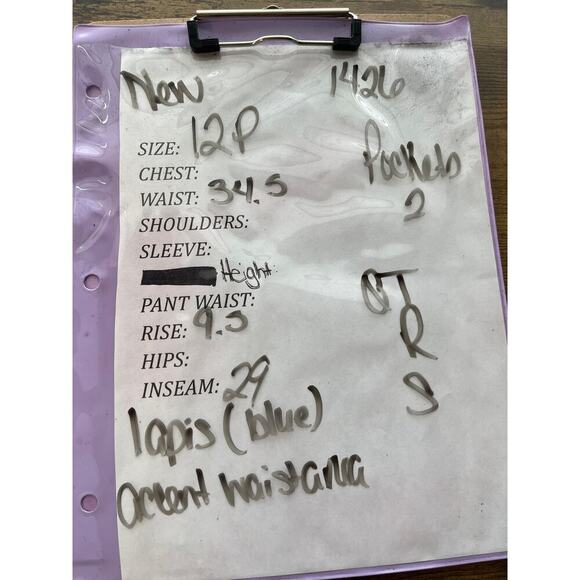 New 1426
SIZE: 12P
CHEST: Pockets
WAIST: 34.5 2
SHOULDERS:
SLEEVE:
Height
PANT WAIST: OT
RISE: 9.5 R
HIPS:
INSEAM: 29 S
lapis (blue)
accent waist area